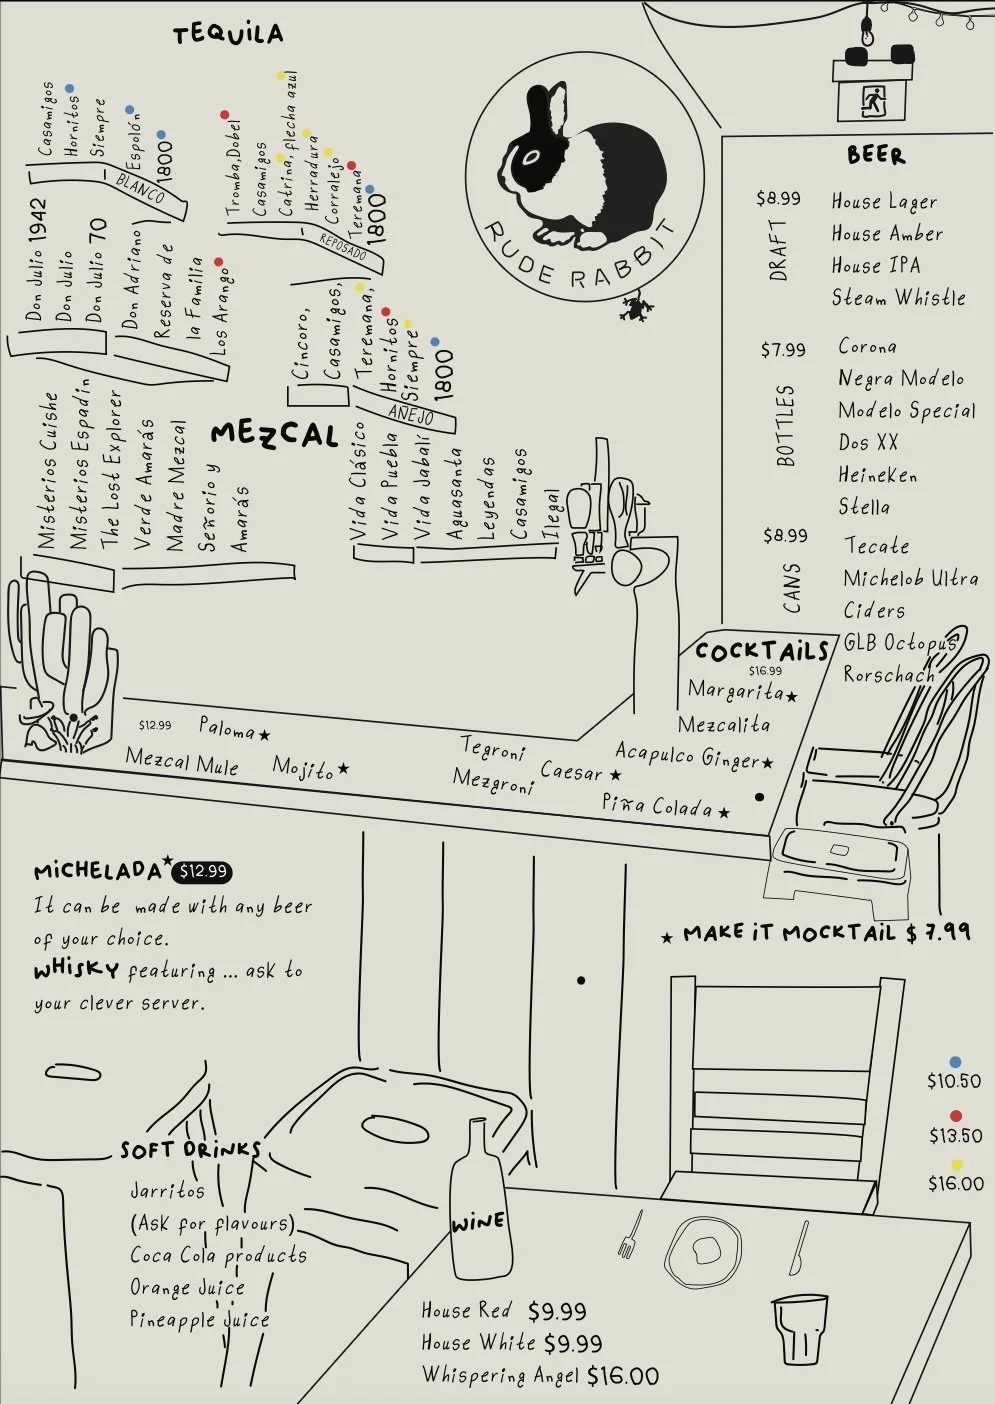 TEQUiLA
Casamigos
Hornitos
Siempre
Espolón
1800
BLANCO
Tromba,Dobel
Casamigos
Catrina, flecha azul
Herradura
Corralejo
Teremana
1800
REPOSADO
Don Julio 1942
Don Julio
Don Julio 70
Don Adriano
Reserva de
la Familia
Los Arango
Cincoro,
Casamigos,
Teremana,
Hornitos
Siempre
1800
AÑEJO
RUDE RABBIT
MEZCAL
Misterios Cuishe
Misterios Espadin
The Lost Explorer
Verde Amarás
Madre Mezcal
Señorio y
Amarás
Vida Clásico
Vida Puebla
Vida Jabalí
Aguasanta
Leyendas
Casamigos
Ilegal
BEER
$8.99
DRAFT
House Lager
House Amber
House IPA
Steam Whistle
$7.99
BOTTLES
Corona
Negra Modelo
Modelo Special
Dos XX
Heineken
Stella
$8.99
CANS
Tecate
Michelob Ultra
Ciders
GLB Octopus
Rorschach
COCKTAiLS
$16.99
Margarita★
Mezcalita
Acapulco Ginger★
Piña Colada ★
Tegroni
Mezgroni
Caesar ★
$12.99
Paloma★
Mezcal Mule
Mojito★
MiCHELADA★ $12.99
It can be made with any beer
of your choice.
WHiSKY featuring ... ask to
your clever server.
★ MAKE iT MOCKTAiL $ 7.99
$10.50
$13.50
$16.00
SOFT DRiNKS
Jarritos
(Ask for flavours)
Coca Cola products
Orange Juice
Pineapple Juice
WiNE
House Red $9.99
House White $9.99
Whispering Angel $16.00